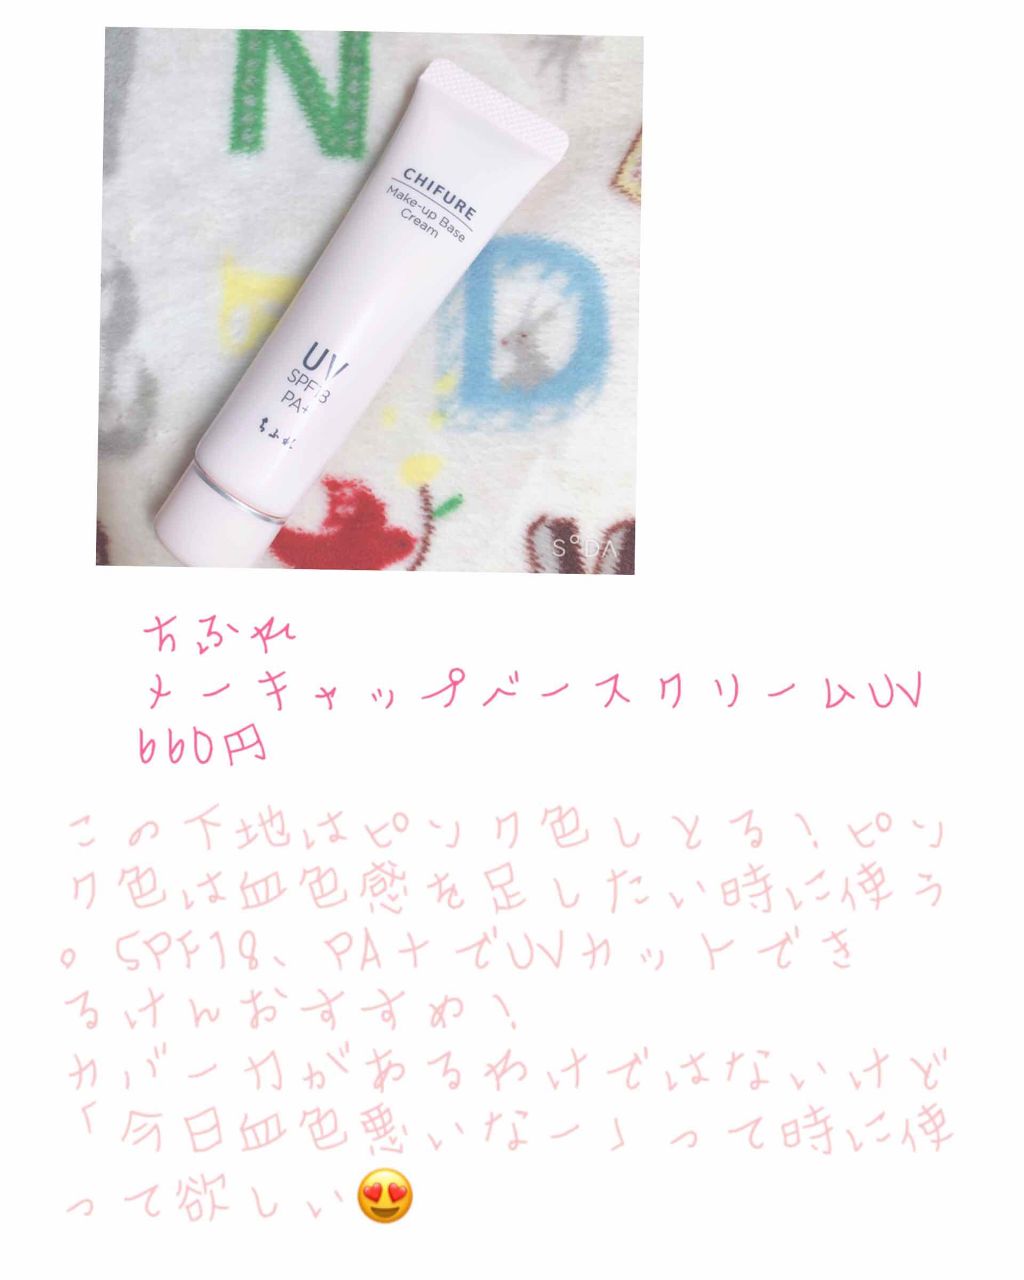 N
CHIFURE
Make-up Base
Cream
D
UV
SPF18
PA+
ちふれ
S°DA
ちふれ
メーキャップベースクリームUV
660円
この下地はピンク色しとる!ピン
ク色は血色感を足したい時に使う
。SPF18、PA+でUVカットでき
るけんおすすめ!
カバー力があるわけではないけど
「今日血色悪いなー」って時に使
って欲しい😍